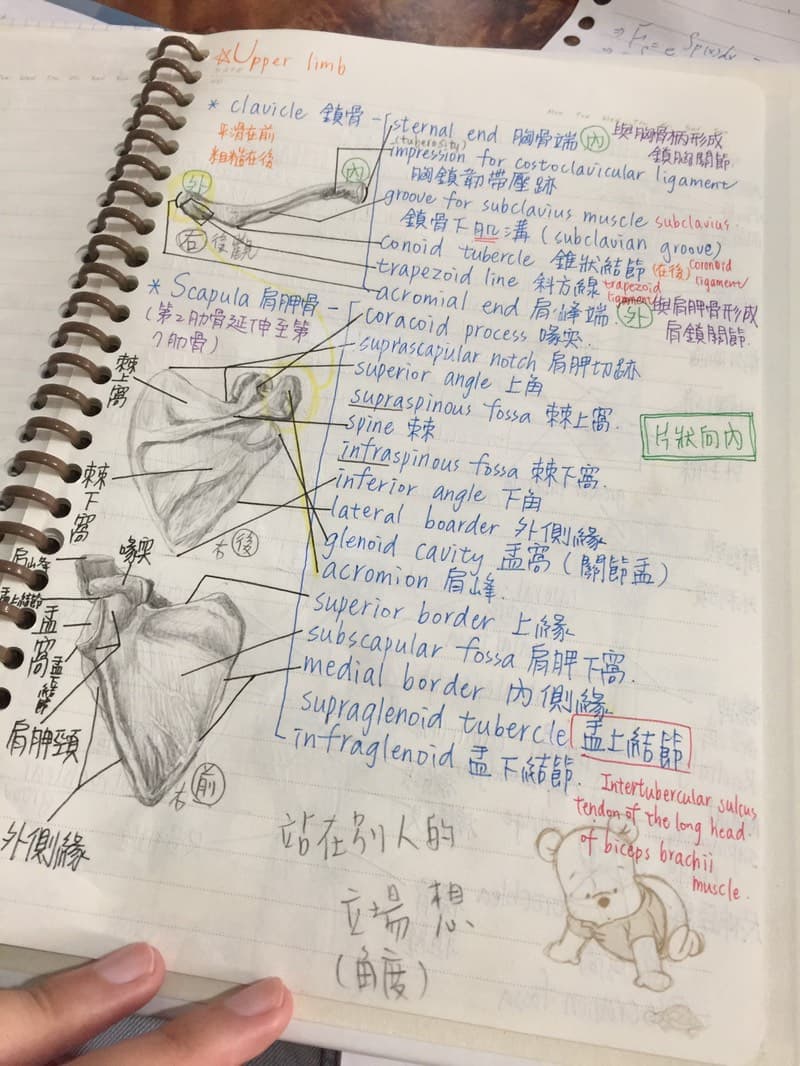 ☆Upper limb
* clavicle 鎖骨
平滑在前
粗糙在後
sternal end 胸骨端 內 與胸骨柄形成
鎖胸關節
(tuberosity)
impression for costoclavicular ligament
胸鎖韌帶壓跡
groove for subclavius muscle subclavius.
鎖骨下肌溝 (subclavian groove)
conoid tubercle 錐狀結節 (在後) coronoid
ligament
trapezoid line 斜方線 trapezoid
ligament
acromial end 肩峰端 外 與肩胛骨形成
肩鎖關節
外
內
右 後觀
* Scapula 肩胛骨
(第2肋骨延伸至第
7肋骨)
coracoid process 喙突.
suprascapular notch 肩胛切跡
superior angle 上角
supraspinous fossa 棘上窩.
spine 棘
片狀向內
infraspinous fossa 棘下窩.
inferior angle 下角
lateral boarder 外側緣
glenoid cavity 盂窩 (關節盂)
acromion 肩峰.
superior border 上緣
subscapular fossa 肩胛下窩.
medial border 內側緣
supraglenoid tubercle 盂上結節
infraglenoid 盂下結節.
棘上窩
棘下窩
右 後
肩峰
喙突
盂上結節
盂窩
盂下結節
肩胛頸
右 前
外側緣
Intertubercular sulcus
tendon of the long head
of biceps brachii
muscle.
站在別人的
立場 想
(角度)